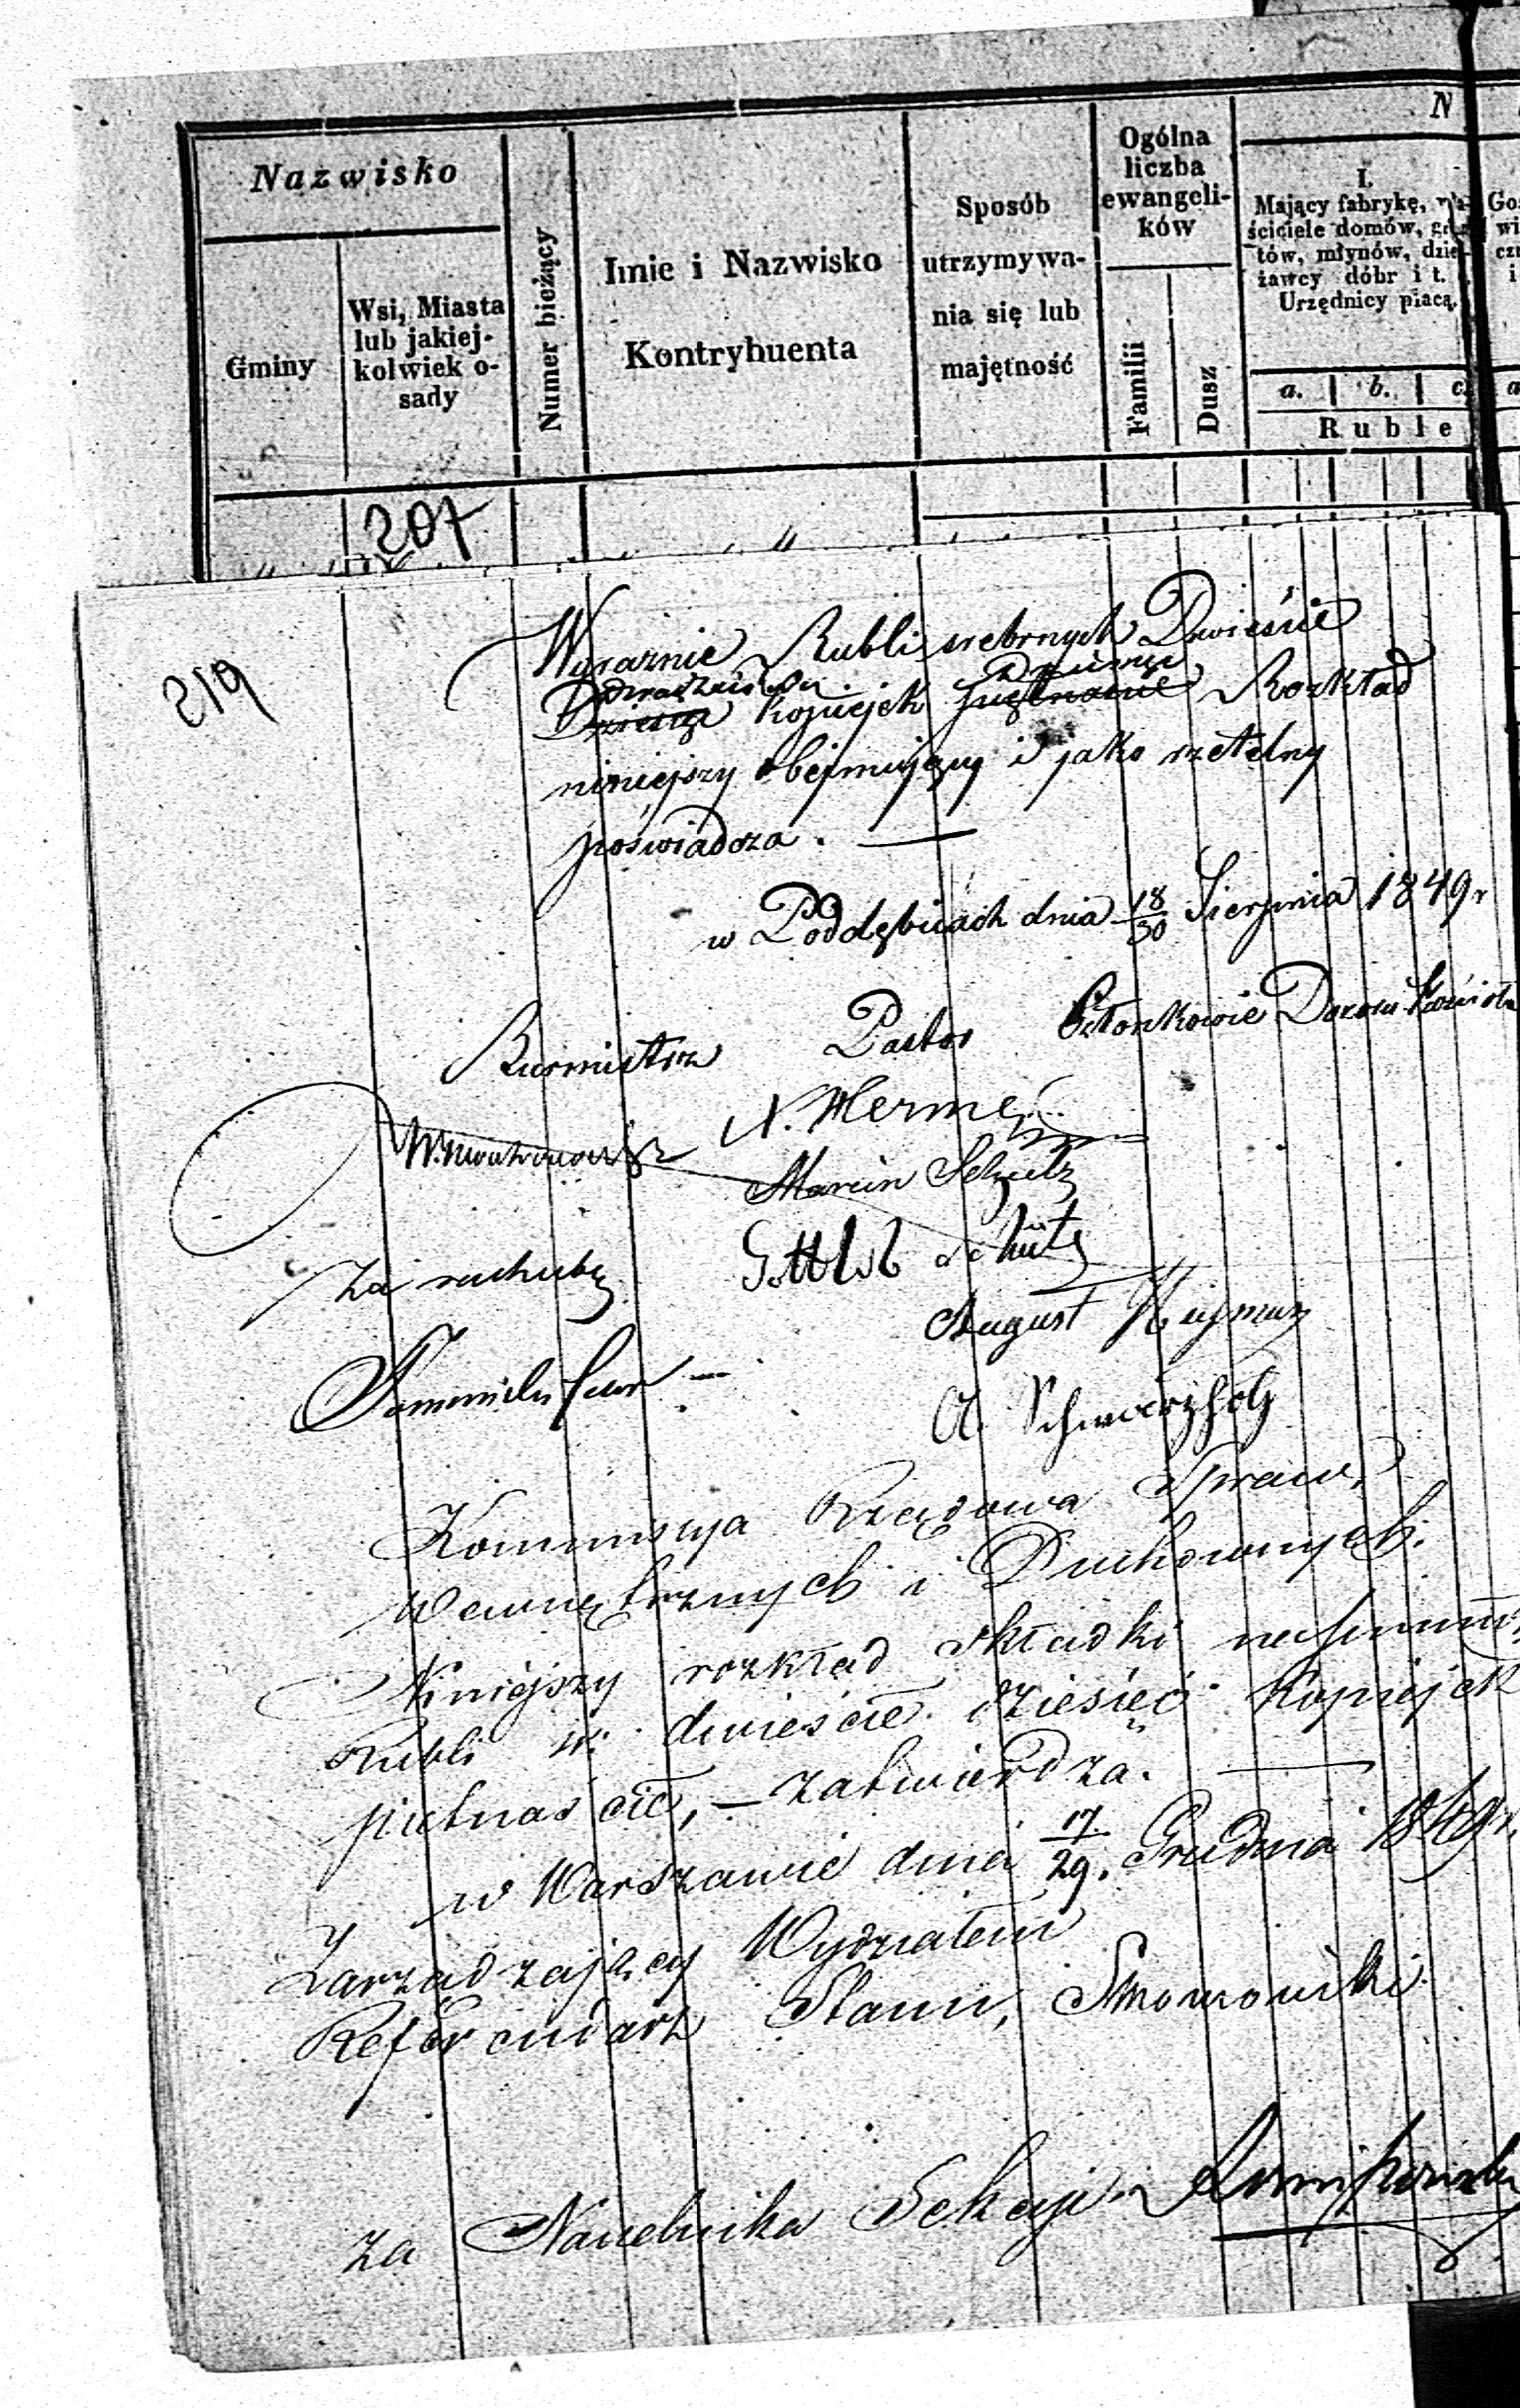 Nazwisko
Gminy
Wsi, Miasta
lub jakiej-
kolwiek o-
sady
Numer bieżący
Imie i Nazwisko
Kontrybuenta
Sposób
utrzymywa-
nia się lub
majętność
Ogólna
liczba
ewangeli-
ków
Familii
Dusz
N
I.
Mający fabrykę,
ściciele domów,
tów, młynów, dzie-
żawcy dóbr i t.
Urzędnicy płacą
a. b. c.
Ruble
207
219
Wyraźnie Rubli srebrnych Dwieście
Dziesięć kopiejek piętnaście Rozkład
niniejszy obejmujący i jako rzetelny
poświadcza. —
w Poddębicach dnia 18/30 Sierpnia 1849 r
Burmistrz Pastor Członkowie Dozoru Kościoła
Marcin Schultz
Za rachubę Gottlib Schütz
August
A. Schwarzholz
Kommissya Rządowa Spraw
Wewnętrznych i Duchownych.
Niniejszy rozkład składki na summę
Rubli sr: dwieście dziesięć Kopiejek
piętnaście, — zatwierdza. —
w Warszawie dnia 17/29. Grudnia 1849 r.
Zarządzający Wydziałem
Referendarz Stanu,
za Naczelnika Sekcyi